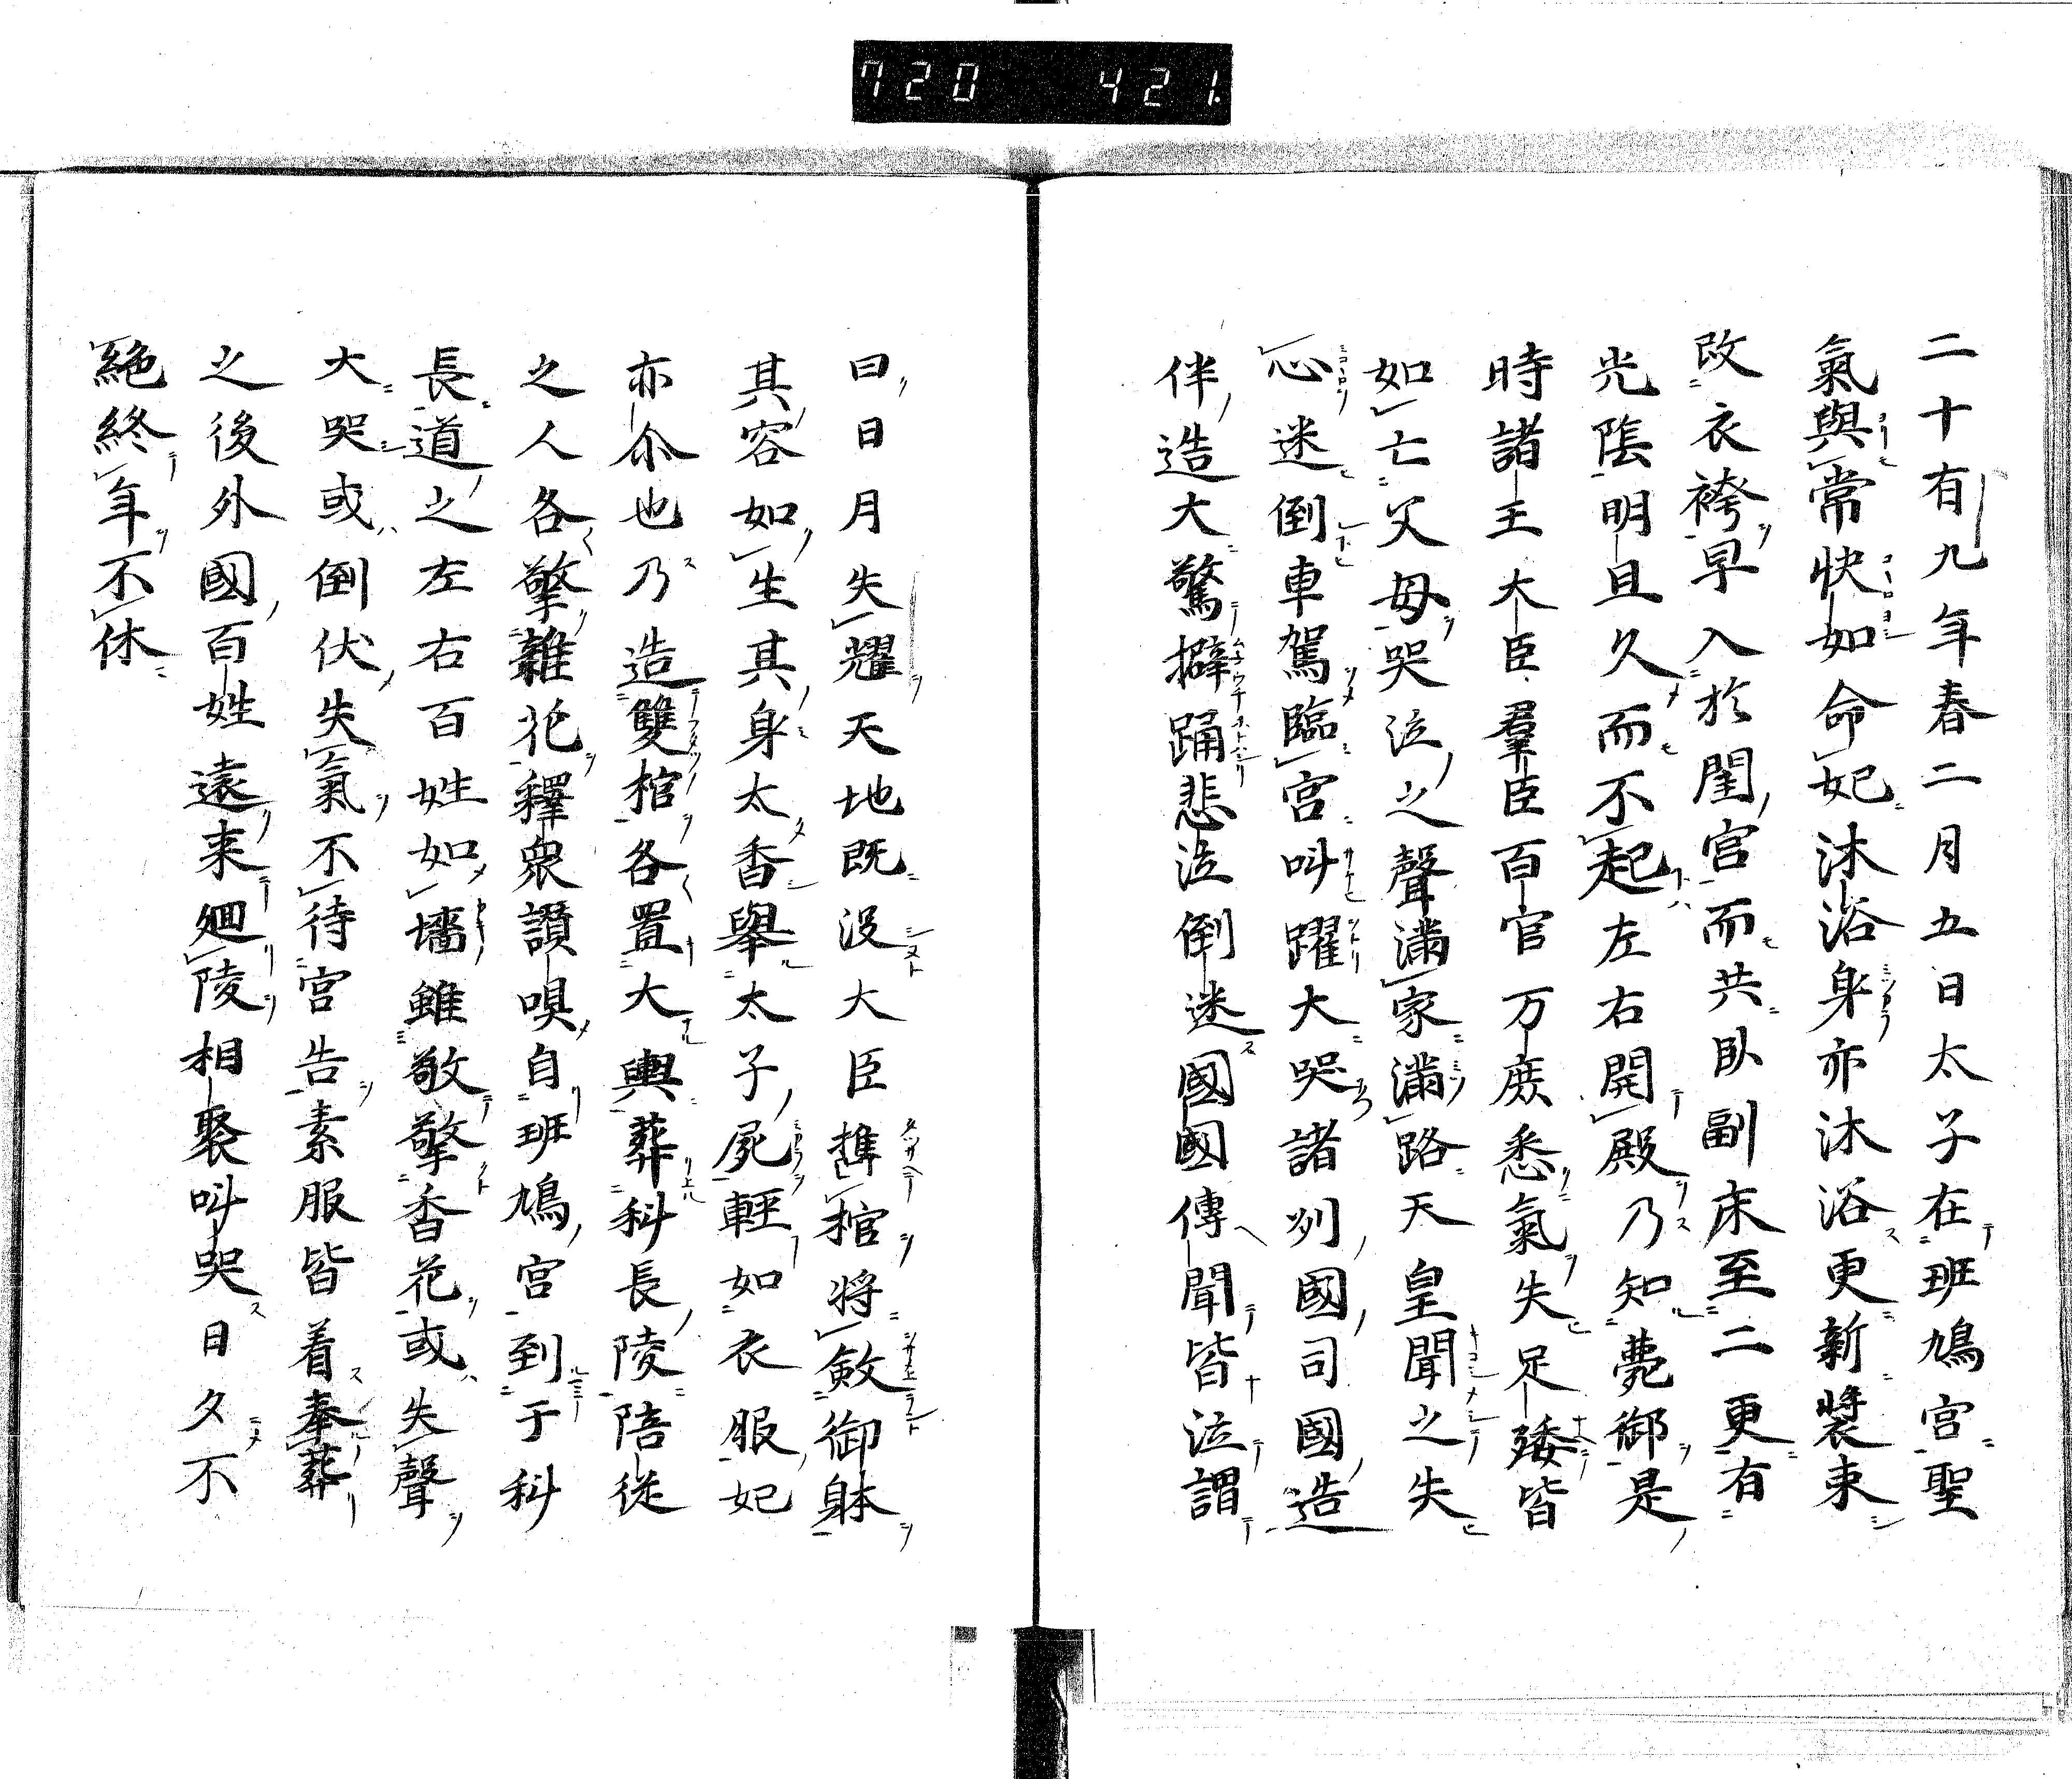 720 421.
二十有九年春二月五日太子在班鳩宮聖
氣與常快如命妃沐浴身亦沐浴更新裝束
改衣袴早入於閨宮而共臥副床至二更有
光陰明旦久而不起左右開殿乃知薨御是
時諸王大臣羣臣百官万庶悉氣失足矮皆
如亡父母哭泣之聲滿家滿路天皇聞之失
心迷倒車駕臨宮叫躍大哭諸州國司國造
伴造大驚擗踊悲泣倒迷國國傳聞皆泣謂
曰日月失耀天地既沒大臣携棺將斂御躰
其容如生其身太香舉太子屍輕如衣服妃
亦尒也乃造雙棺各置大輿葬科長陵陪從
之人各擎雜花釋衆讚唄自班鳩宮到于科
長道之左右百姓如墻雖敬擎香花或失聲
大哭或倒伏失氣不待宮告素服皆着奉葬
之後外國百姓遠来廻陵相聚叫哭日久不
絕終年不休